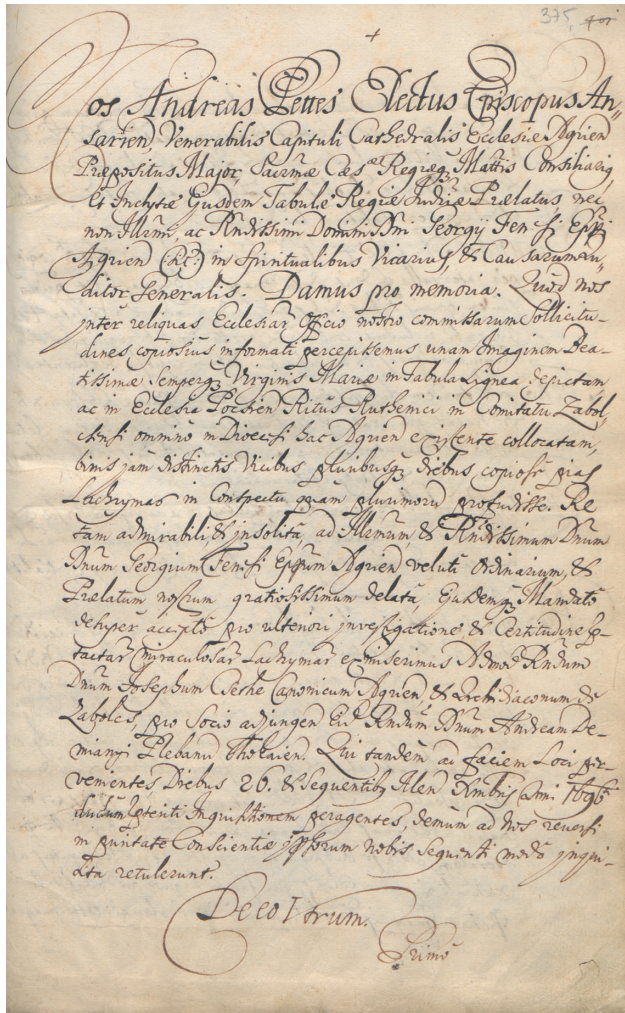 375
+
os Andreas Pettes Electus Episcopus An„
sarien, Venerabilis Capituli Cathedralis Ecclesiæ Agrien
Præpositus Major, Sacræ Cæs. Regiæq Mattis Consiliariq,
et Inclytæ Ejusdem Tabulæ Regiæ Judriæ Prælatus nec
non Illrmi, ac Rndissimi Domini Dni Georgij Fenesi Eppi
Agrien (:&c:) in Spiritualibus Vicariq, & Causarum au„
ditor Generalis. Damus pro memoria. Quod nos
inter reliquas Ecclesiar Officio nostro commissarum Sollicitu-
dines copiosius informati percepissemus unam Imaginem Bea-
tissimæ Semperq Virginis Mariæ in Tabula Lignea depictam
ac in Ecclesia Pocsien Ritus Ruthenici in Comitatu Zabol„
csensi omnino in Dioecesi hac Agrien existente collocatam,
binis jam distinctis Vicibus pluribusq diebus copiose pias
Lachrymas in Conspectu quam plurimoru profudisse. Re
tam admirabili, & insolita, ad Illrmum, & Rndissimum Dnum
Dnum Georgium Fenesi Eppum Agrien veluti Ordinarium, &
Prælatum nostrum gratiosissimum delata, Ejusdemq Mandato
desuper accepto pro ulteriori investigatione & Certitudine p-
tactar miraculosar Lachrymar exmiserimus Admod Rndum
Dnum Josephum Csethe Canonicum Agrien & Archidiaconum de
Zabolcs, pro Socio adjungen Ei Rndum Dnum Andream De-
mianzi Plebanu Thokaien. Qui tandem ad faciem Loci per
venientes Diebus 26. & Sequentibq Alen Xmbris Anni 1696
Inquisitionem peragentes, demum ad Nos reversi
in puritate Conscientiæ ipsorum nobis sequenti modo inqui-
sita retulerunt.
De eo Utrum.
Primo